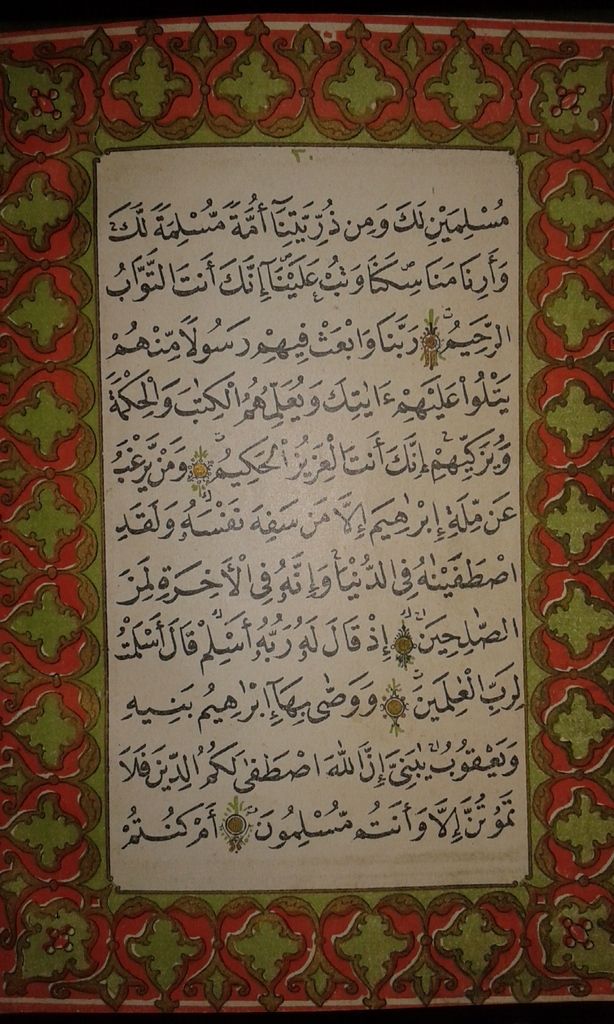 ٢٠
مُسْلِمَيْنِ لَكَ وَمِن ذُرِّيَّتِنَآ أُمَّةً مُّسْلِمَةً لَّكَ
وَأَرِنَا مَنَاسِكَنَا وَتُبْ عَلَيْنَآ إِنَّكَ أَنتَ التَّوَّابُ
الرَّحِيمُ رَبَّنَا وَابْعَثْ فِيهِمْ رَسُولًا مِّنْهُمْ
يَتْلُواْ عَلَيْهِمْ ءَايَٰتِكَ وَيُعَلِّمُهُمُ الْكِتَٰبَ وَالْحِكْمَةَ
وَيُزَكِّيهِمْ إِنَّكَ أَنتَ الْعَزِيزُ الْحَكِيمُ وَمَنْ يَّرْغَبُ
عَن مِّلَّةِ إِبْرَٰهِيمَ إِلَّا مَن سَفِهَ نَفْسَهُۥ وَلَقَدِ
اصْطَفَيْنَٰهُ فِي الدُّنْيَا وَإِنَّهُۥ فِي الْأَخِرَةِ لَمِنَ
الصَّٰلِحِينَ إِذْ قَالَ لَهُۥ رَبُّهُۥ أَسْلِمْ قَالَ أَسْلَمْتُ
لِرَبِّ الْعَٰلَمِينَ وَوَصَّىٰ بِهَآ إِبْرَٰهِيمُ بَنِيهِ
وَيَعْقُوبُ يَٰبَنِيَّ إِنَّ اللَّهَ اصْطَفَىٰ لَكُمُ الدِّينَ فَلَا
تَمُوتُنَّ إِلَّا وَأَنتُم مُّسْلِمُونَ أَمْ كُنتُمْ